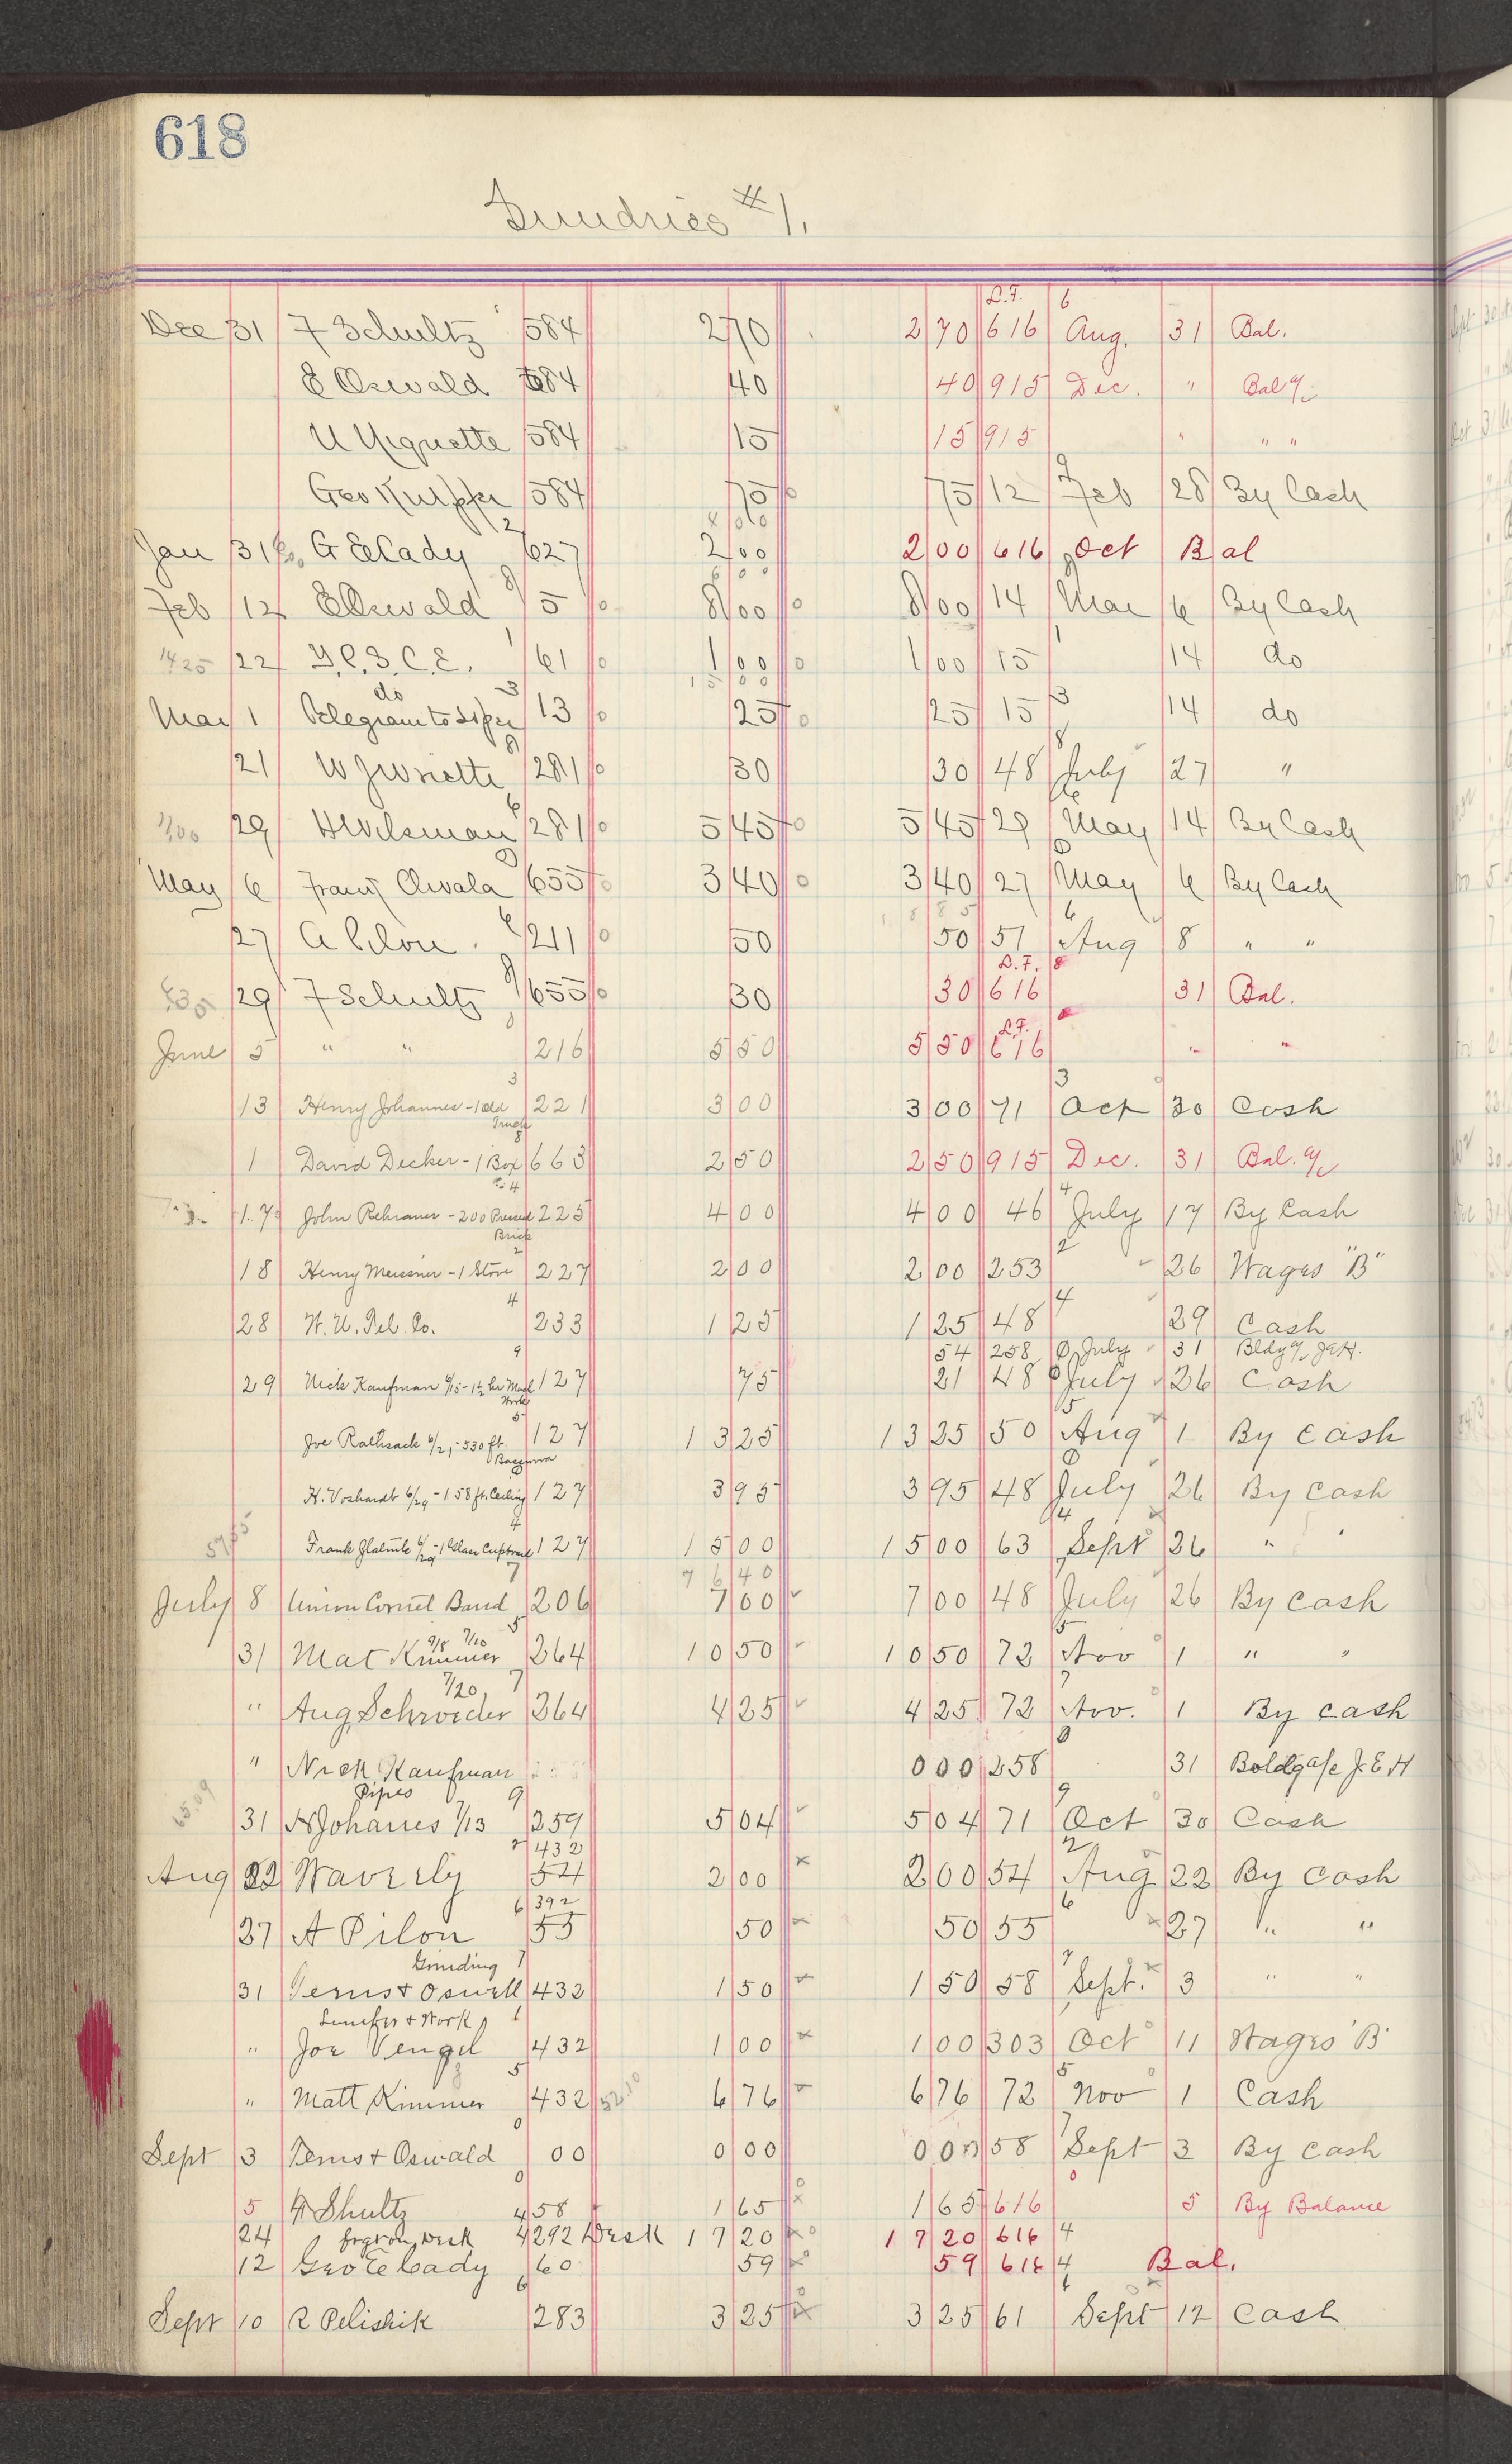 618
Sundries #1.
L.F. 6
Dec 31 F Schultz 584 2 70 2 70 616 Aug. 31 Bal.
E Oswald 584 40 40 915 Dec. " Bal a/c
584 15 15 915 " " "
9
Geo 584 75 75 12 Feb 28 By Cash
4 00
Jan 31 G E Cady 627 2 00 2 00 616 Oct Bal
6 00
Feb 12 E Oswald 5 8 00 8 00 14 Mar 6 By Cash
14 25 22 Y.P.S.C.E. 61 1 00 1 00 15 14 do
do 15 00
Mar 1 Telegram to 13 25 25 15 14 do
21 281 30 30 48 July 27 "
29 281 5 45 5 45 29 May 14 By Cash
May 6 655 3 40 3 40 27 May 6 By Cash
27 A Pilon. 211 50 50 51 Aug 8 " "
L.F. 8
29 F Schultz 655 30 30 616 31 Bal.
L.F.
June 5 " " 216 5 50 5 50 616 " "
3 3
13 Henry Johannes - 1 old 221 3 00 3 00 71 Oct 30 Cash
Truck
1 David Decker - 1 Box 663 2 50 2 50 915 Dec. 31 Bal. a/c
4 4
17 John - 200 Pressed 225 4 00 4 00 46 July 17 By Cash
Brick
2 2
18 Henry Meissner - 1 Stove 227 2 00 2 00 253 " 26 Wages "B"
4 4
28 W. U. Tel. Co. 233 1 25 1 25 48 " 29 Cash
9 54 258 0 July " 31 Bldg a/c J.E.H.
29 Nick Kaufman 6/15 - 1½ hr 127 75 21 48 July 26 Cash
Work
5 5
Joe Rathsack 6/2, - 530 ft. 127 13 25 13 25 50 Aug 1 By Cash
H. Voshardt 6/29 - 158 ft. Ceiling 127 3 95 3 95 48 July 26 By Cash
4 4
Frank 6/29 - 1 127 15 00 15 00 63 Sept 26 " "
7 76 40
July 8 Union Cornet Band 206 7 00 7 00 48 July 26 By Cash
9/8 7/10 5 5
31 Mat Kimmer 264 10 50 10 50 72 Nov 1 " "
7/20 7 7
" Aug Schroeder 264 4 25 4 25 72 Nov. 1 By Cash
" Nick Kaufman 0 00 258 31 J E H
Pipes 9 9
31 H Johannes 7/13 259 5 04 5 04 71 Oct 30 Cash
432 2
Aug 22 Waverly 54 2 00 2 00 54 Aug 22 By Cash
6 392 6
27 A Pilon 55 50 50 55 27 " "
Grinding 7 7
31 Tenis + Oswald 432 1 50 1 50 58 Sept. 3 " "
Lumber + Work
" Joe Vengel 432 1 00 1 00 303 Oct 11 Wages "B"
5 5
" Matt Kimmer 432 52.10 6 76 6 76 72 Nov 1 Cash
0 7
Sept 3 Tenis + Oswald 00 0 00 0 00 58 Sept 3 By Cash
0 0
5 Shultz 458 1 65 1 65 616 5 By Balance
24 Desk 4292 Desk 17 20 17 20 616 4
12 Geo E Cady 60 59 59 616 4 Bal.
6 6
Sept 10 R Pelishik 283 3 25 3 25 61 Sept 12 Cash